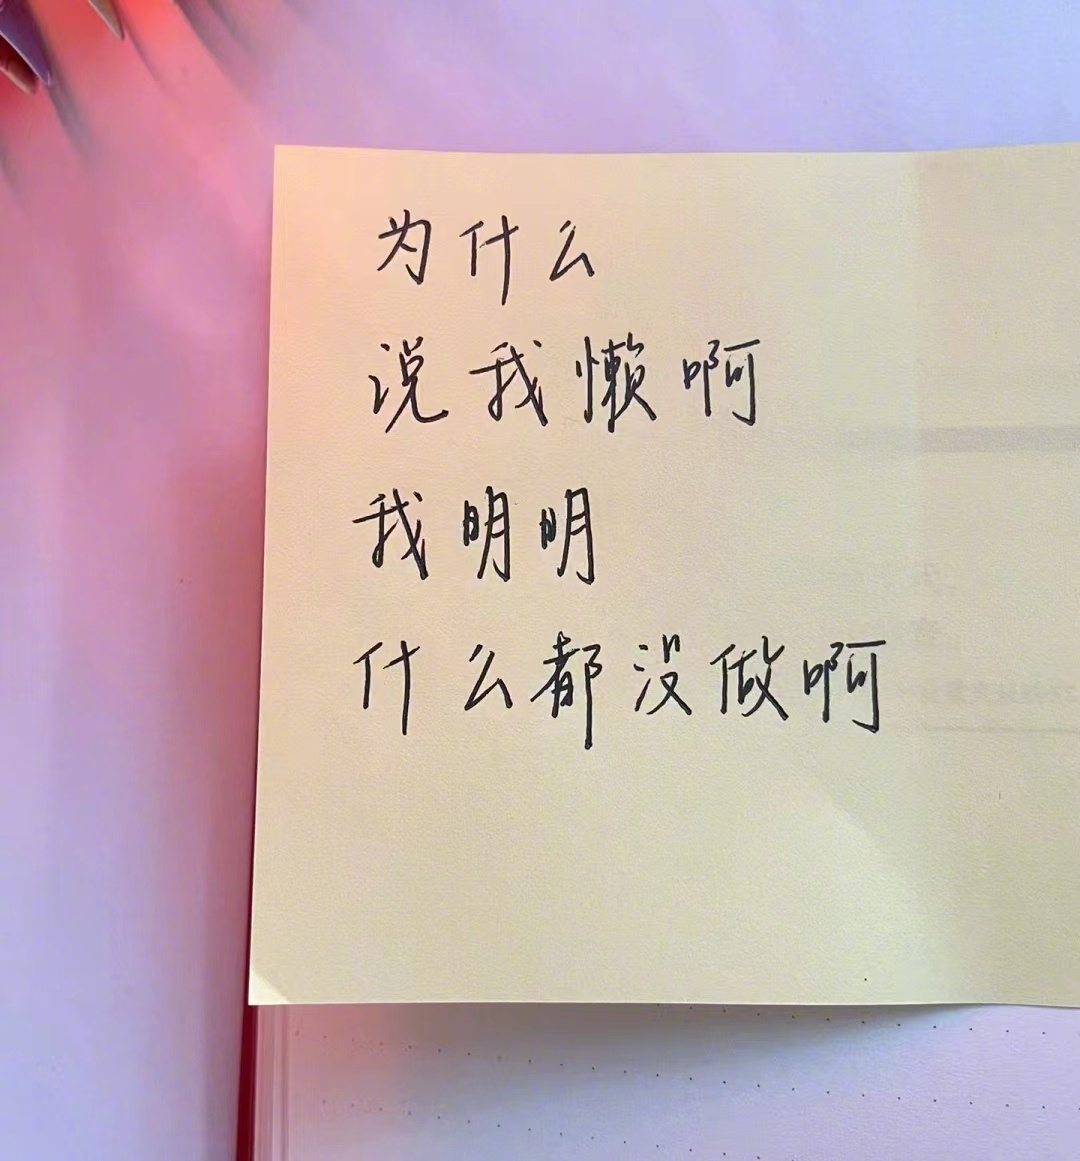 为什么
说我懒啊
我明明
什么都没做啊